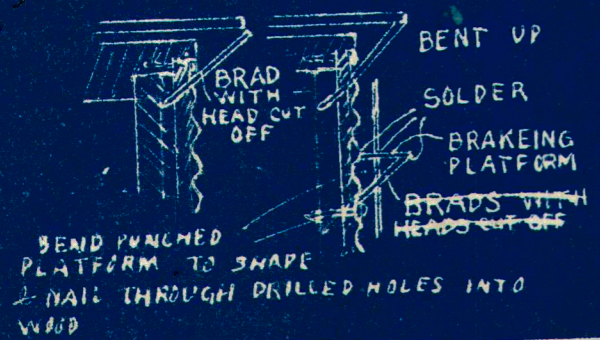 BENT UP
BRAD
WITH
HEAD CUT
OFF
SOLDER
BRAKEING
PLATFORM
BRADS WITH
HEADS CUT OFF
BEND PUNCHED
PLATFORM TO SHAPE
& NAIL THROUGH DRILLED HOLES INTO
WOOD